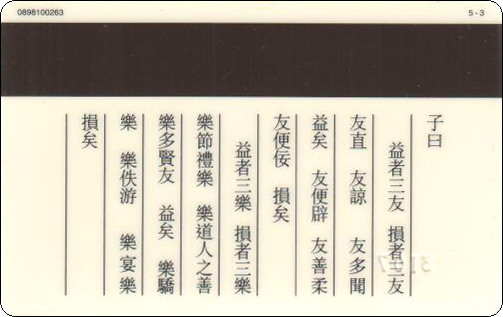 0898100263
5 - 3
子曰
益者三友 損者三友
友直 友諒 友多聞
益矣 友便辟 友善柔
友便佞 損矣
益者三樂 損者三樂
樂節禮樂 樂道人之善
樂多賢友 益矣 樂驕
樂 樂佚游 樂宴樂
損矣